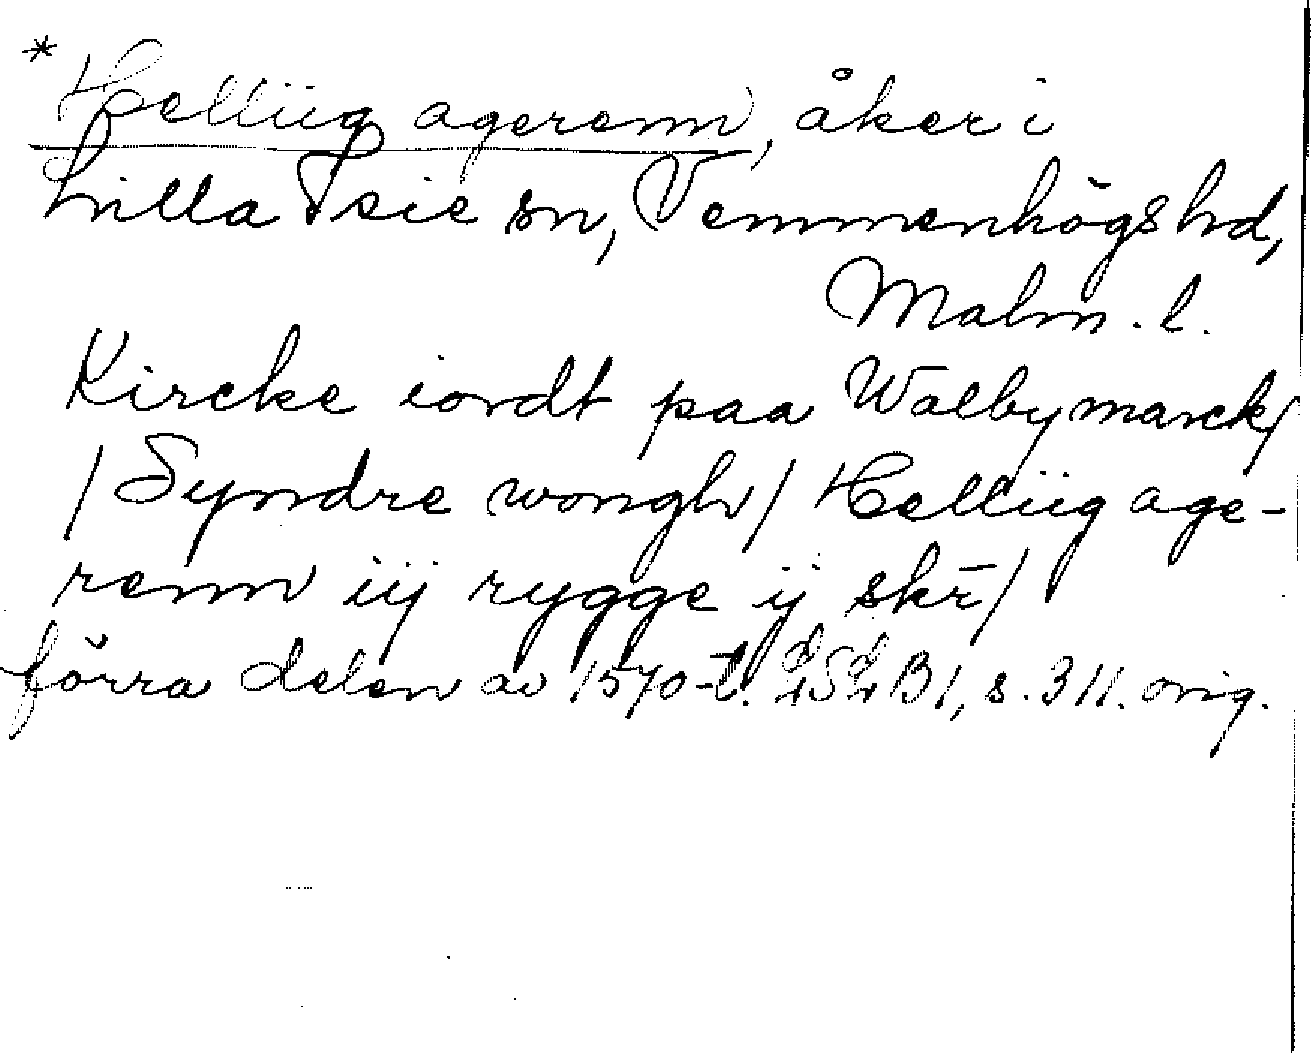 * Helliig agerenn, åker i
Lilla Isie sn, Vemmenhögs hd,
Malm. l.
Kircke iordt paa Walby marck/
/Syndre wongh/ Helliig age-
renn iij rygge ij skr̄/
förra delen av 1570-t. B1, s. 311. orig.